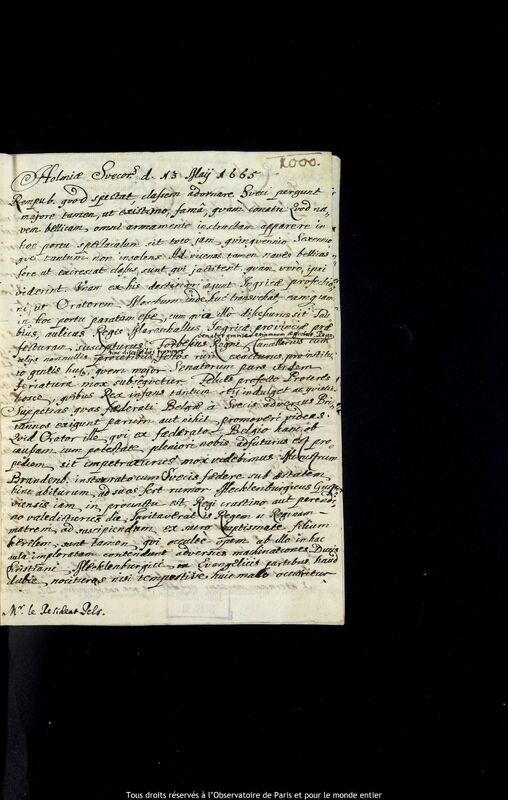 1000.
Holmiæ Svecorũ d. 13 Maij 1665
Rempub. quod spectat, classem adornare Sveci pergunt
majore tamen, ut existimo, famâ, quam conatu. Quod na-
vem bellicam omni armamento instructam apparere in
hoc portu spectaculum sit toto jam quinquennio Sexennio
que tantum non insolens. Ad vicenas tamen naves bellicas
fore ut excrescat classis, sunt qui jactitent, quam vere, ipsi
viderint. Unam ex his destinari ajunt Ingricæ profectio-
ni, ut Oratorem Moschum inde huc transvehat eamque jam
in hoc portu paratam esse, cum qua Mo discessurus sit Tau-
bius, aulicus Regis Mareschallus, Ingricæ provinciæ præ
fecturam suscepturus.
Regni Cancellarius cum
relijs nonnullis
exacturus pro institu-
to gentis hujus, quem major Senatorum pars
feriatura mox subsequetur.
hosce, quibus Rex infans tantum
Suppetias quas fæderati Belgæ a Svecis adversus Bri-
tannos exigunt parum aut nihil promoveri videas.
Quid Orator ille qui ex fæderato Belgio hanc ob
causam cum potestate pleniori nobis adfuturus est pro-
pediem, sit impetraturus mox videbimus. Ministrum
Brandenb. instaurato cum Svecis fædere sub æstatem
hinc abiturum, ad suos fert rumor. Mecklenburgicus Gustro-
viensis jam in procinctu est, Regi crastino aut peren-
no valedicturus die. Invitaverat is Regem & Reginam
matrem ad suscipiendum ex sacro Baptismate filium
herilem, sunt tamen, qui occulte opem ab illo in hac
aula imploratam contendant adversus machinationes Ducis
Cristiani Mecklenburgici Evangelicis partibus haud
dubie nocituras nisi tempestive huic malo occuritur.
Mr. le Resident Pels.
Tous droits réservés à l'Observatoire de Paris et pour le monde entier